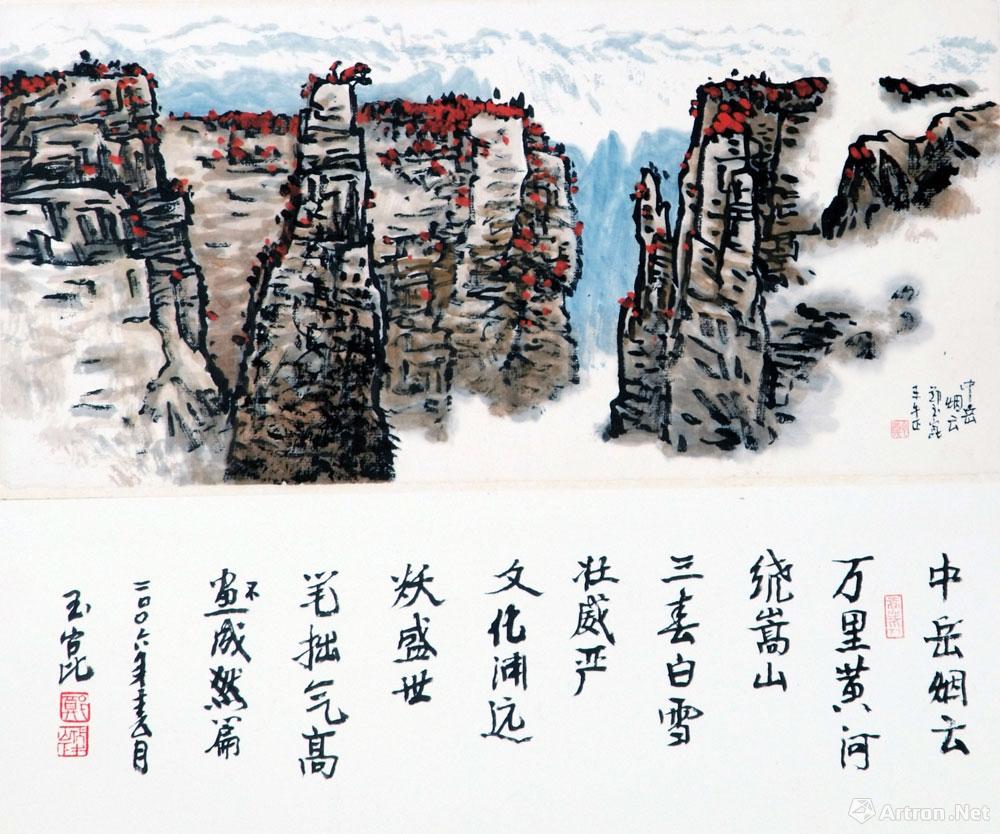 中岳
烟云
郑玉崑
壬午正
中岳烟云
万里黄河
绕嵩山
三春白雪
壮威严
文化渊远
盛世
笔拙气高
画不成篇
二〇〇六年 月
玉崑
Artron.Net